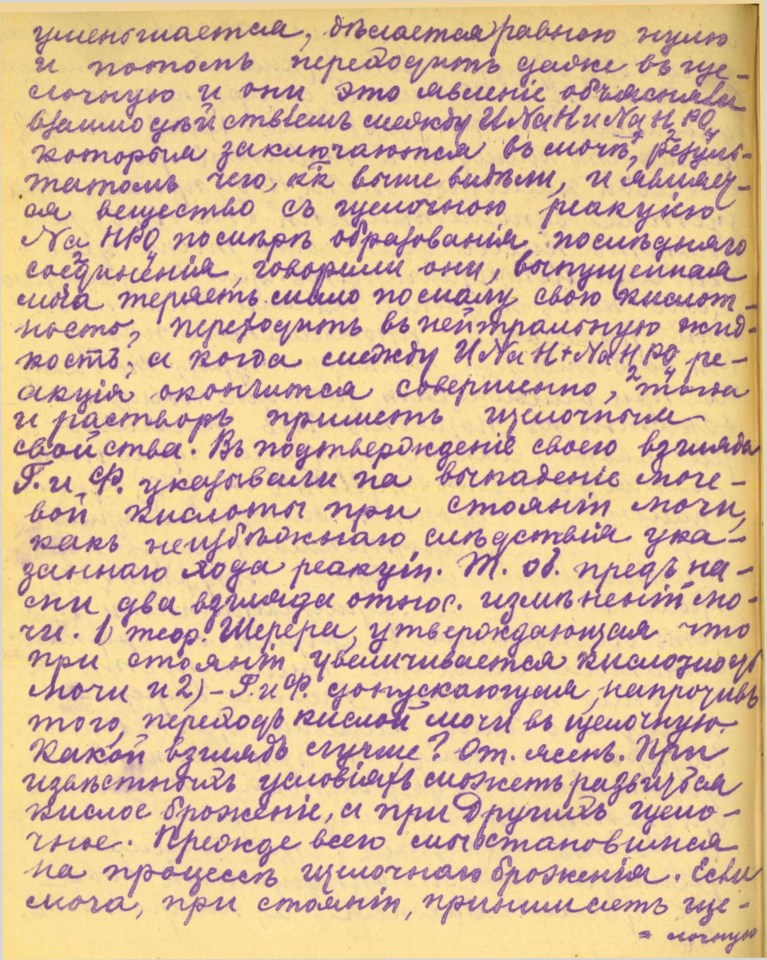 уменьшается, дѣлается равною нулю
и потомъ переходитъ даже въ ще-
лочную и они это явленіе объясняли
взаимодѣйствіемъ между UNaH и NaH2PO4
которыя заключаются въ мочѣ, резуль-
татомъ чего, кк выше видѣли, и являет-
ся вещество съ щелочною реакціею
Na2HPO4 посмѣрѣ образованія послѣдняго
соединенія, говорили они, выпущенная
моча теряетъ мало помалу свою кислот-
ность, переходитъ въ нейтральную жид-
кость, а когда между UNaH+NaH2PO4 ре-
акція окончится совершенно, тогда
и растворъ приметъ щелочныя
свойства. Въ подтвержденіе своего взгляда
Г. и Ф. указывали на выпаденіе моче-
вой кислоты при стояніи мочи,
какъ неизбѣжнаго слѣдствія ука-
заннаго хода реакціи. Т. об. предъ на-
ми два взгляда относ. измѣненій мо-
чи. 1) теор. Шерера, утверждающая что
при стояніи увеличивается кислотность
мочи и 2) - Г. и Ф. допускающая, напротивъ
того, переходъ кислой мочи въ щелочную.
Какой взглядъ лучше? От. ясенъ. При
извѣстныхъ условіяхъ можетъ развиться
кислое броженіе, а при другихъ щело-
чное. Прежде всего мы остановимся
на процессѣ щелочнаго броженія. Если
моча, при стояніи, принимаетъ ще-
= лочную